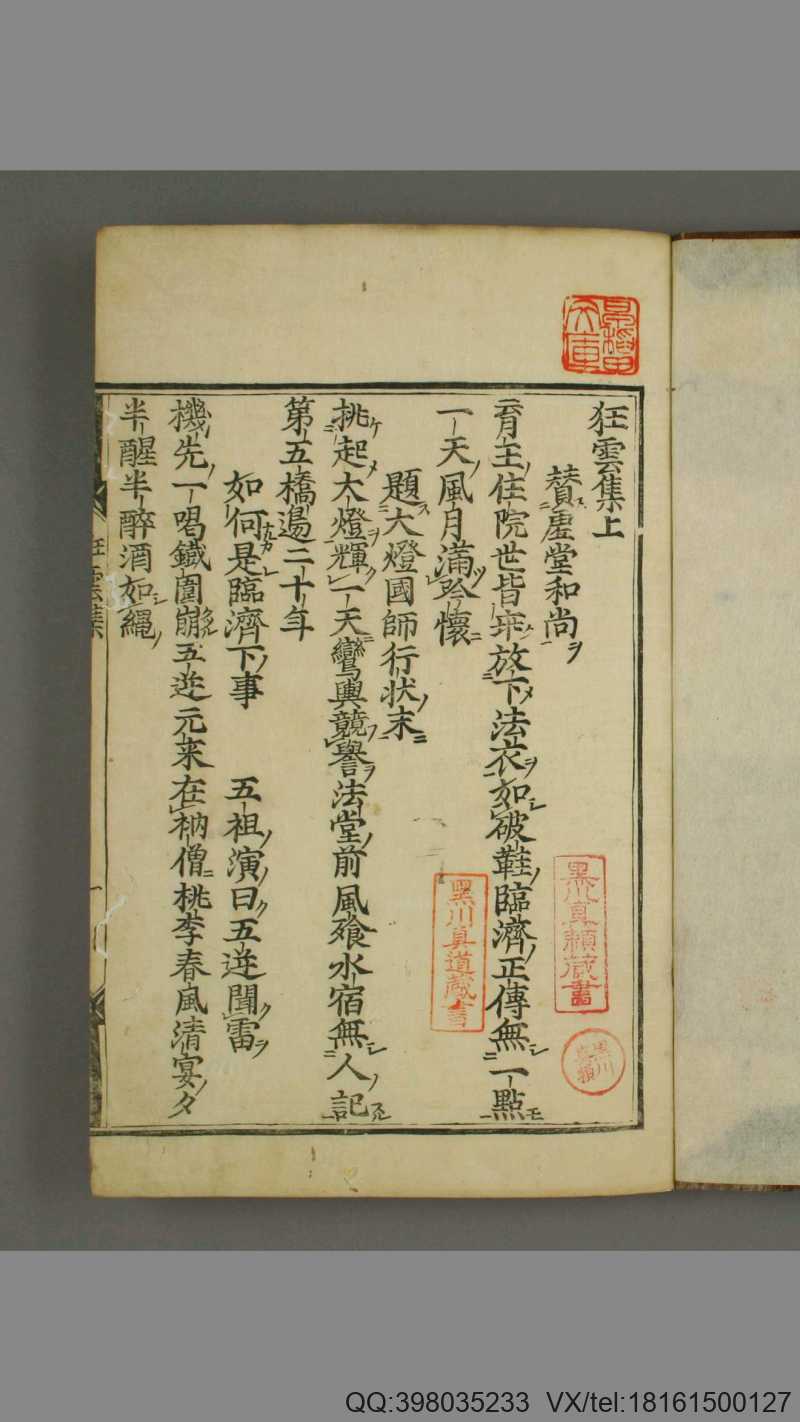 狂雲集上
賛虛堂和尚
育王住院世皆乖放下法衣如破鞋臨濟正傳無一點
一天風月滿吟懷
題大燈國師行狀末
挑起大燈輝一天鸞輿競譽法堂前風飡水宿無人記
第五橋邊二十年
如何是臨濟下事 五祖演曰五逆聞雷
機先一喝鐵圍崩五逆元来在衲僧桃李春風清宴夕
半醒半醉酒如繩
狂雲集
一
黑川真賴藏書
黑川真道藏書
QQ:398035233 VX/tel:18161500127